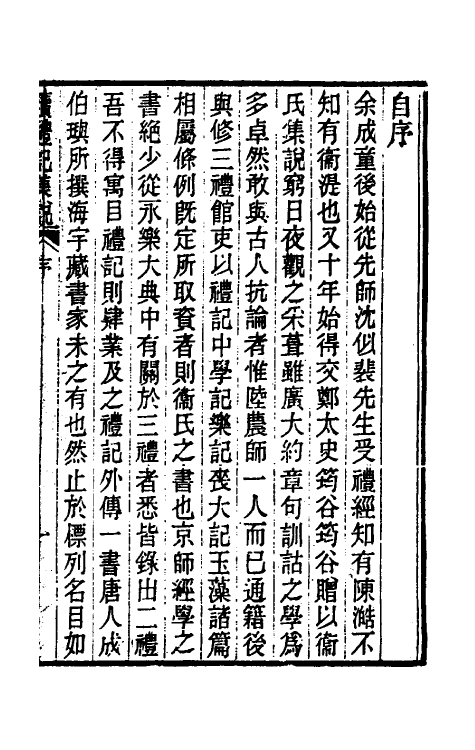 自序
余成童後始從先師沈似裴先生受禮經知有陳澔不
知有衞湜也又十年始得交鄭太史筠谷筠谷贈以衞
氏集說窮日夜觀之采葺雖廣大約章句訓詁之學爲
多卓然敢與古人抗論者惟陸農師一人而已通籍後
與修三禮館吏以禮記中學記樂記喪大記玉藻諸篇
相屬條例旣定所取資者則衞氏之書也京師經學之
書絶少從永樂大典中有關於三禮者悉皆錄出二禮
吾不得寓目禮記則肄業及之禮記外傳一書唐人成
伯璵所撰海宇藏書家未之有也然止於標列名目如
續禮記集說 序 一